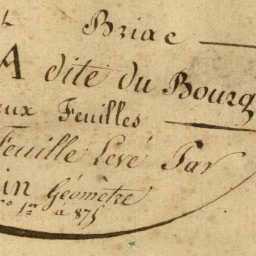 t Briac
A dite du Bourg
eux Feuilles
Feuille Levé Par
in Géomètre
no 1er à 875